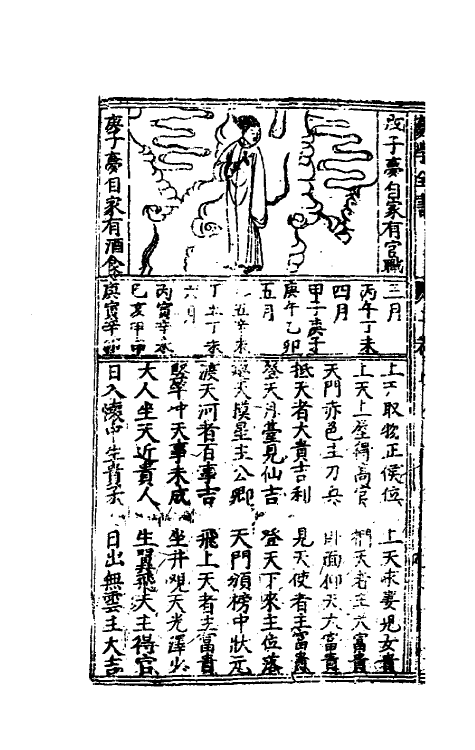 戌子夢自家有官職
庚子夢自家有酒食
三月
丙午丁未
四月
甲子庚子
庚午乙卯
五月
辛未
丁未
六月
丙寅辛未
己亥甲申
庚寅辛卯
上天取物正侯位
上天求妻兒女貴
上天上屋得高官
天者主大富貴
天門赤色主刀兵
卧面仰天大富貴
抵天者大貴吉利
見天使者主富貴
登天月臺見仙吉
登天下來主位落
天摸星主公卿
天門頒榜中狀元
渡天河者百事吉
飛上天者主富貴
冲天事未成
坐井觀天光澤少
大人坐天近貴人
生翼飛天主得官
日入懷中生貴子
日出無雲主大吉